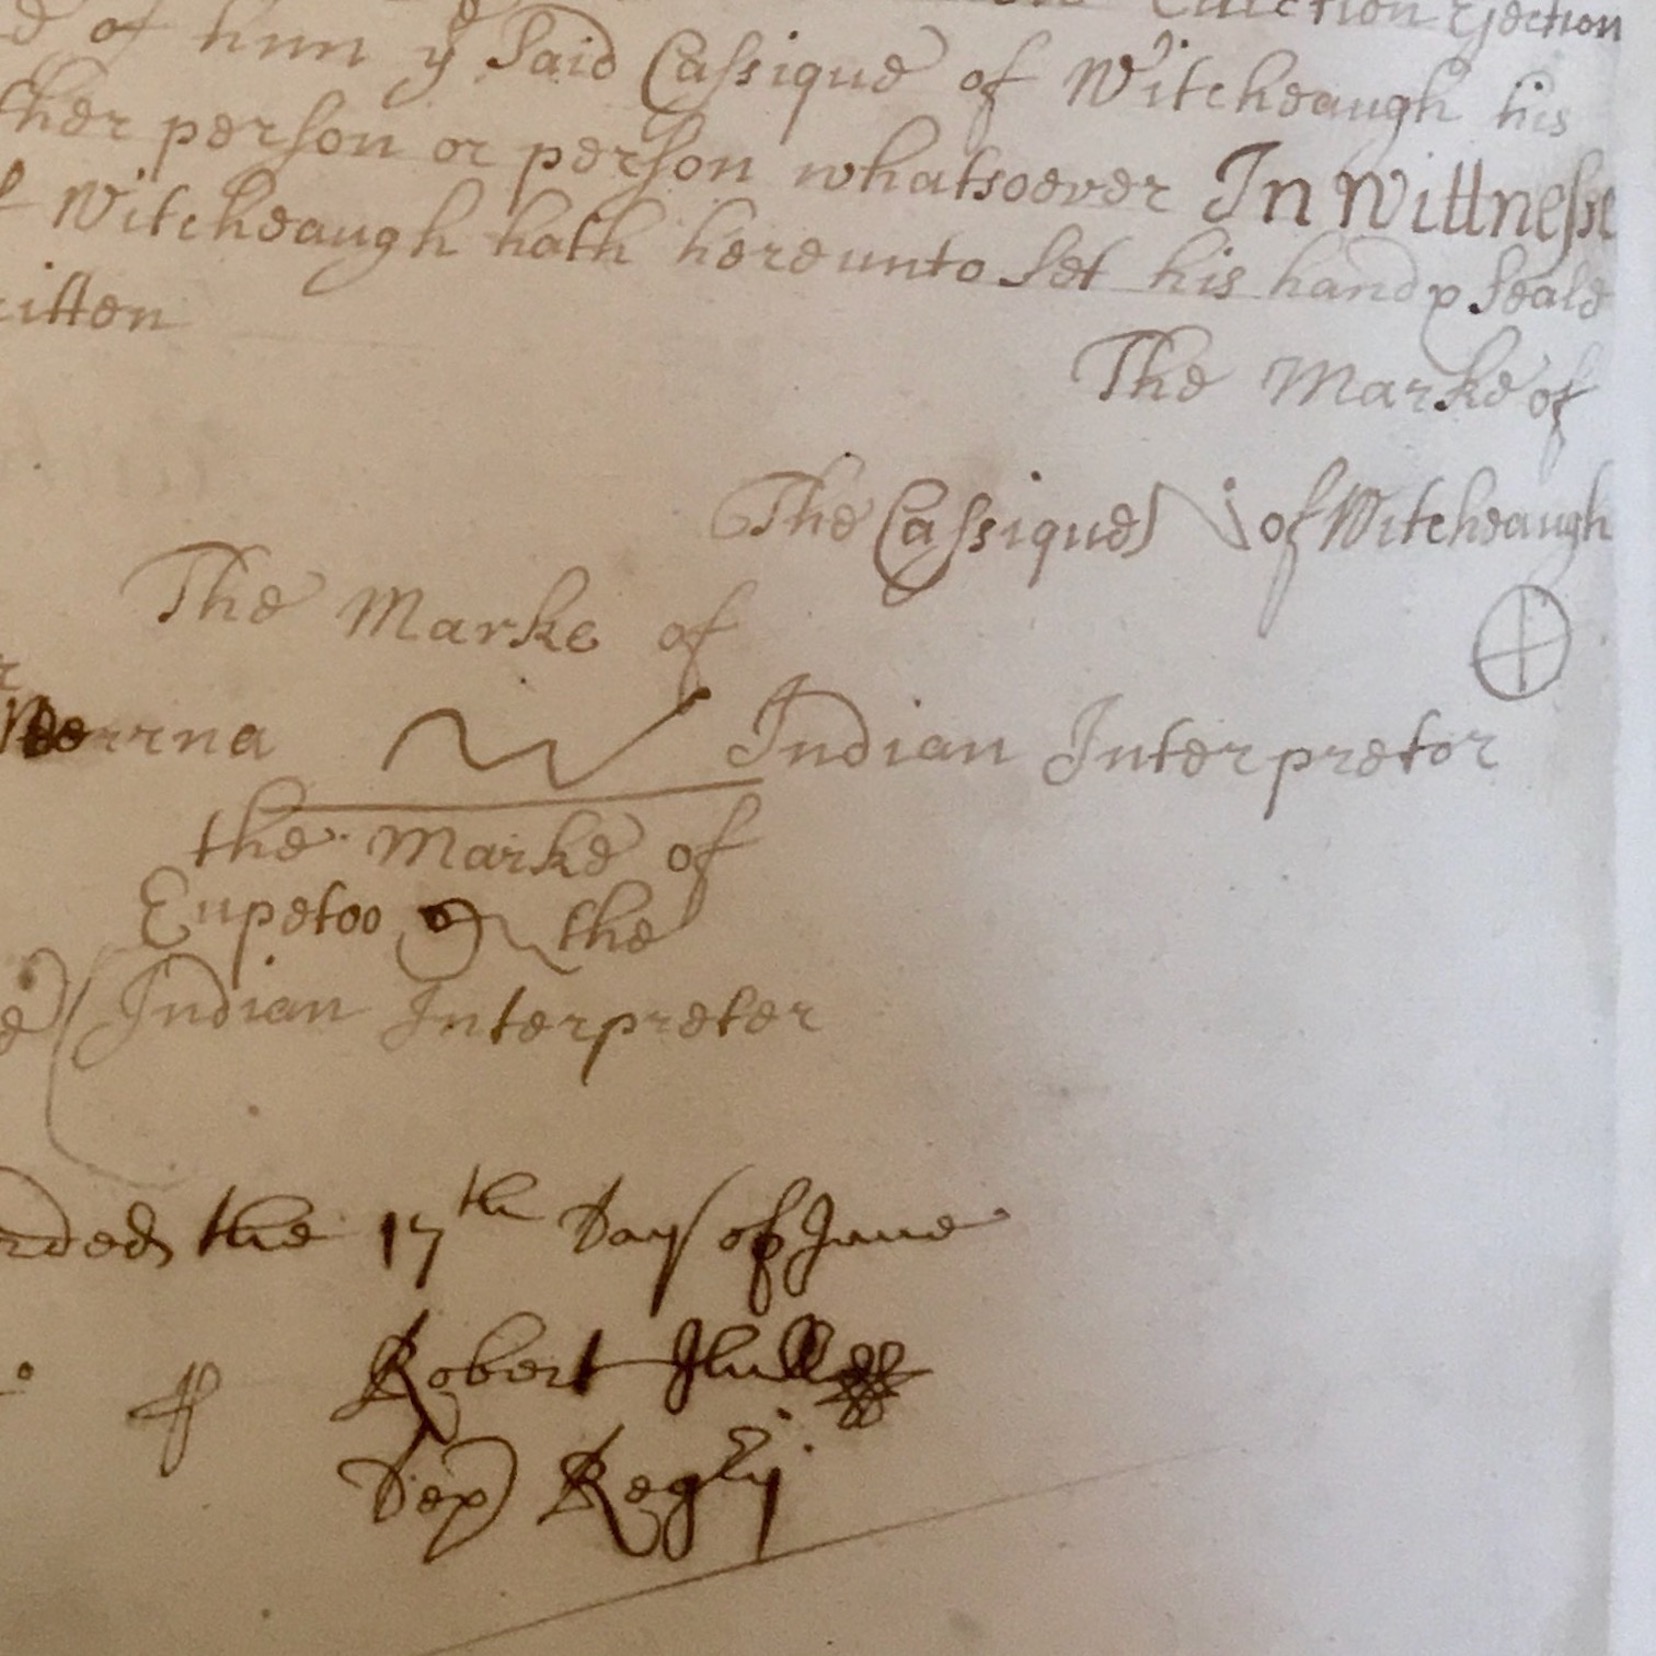 Eviction Ejection
d of him yͤ Said Cassique of Witcheaugh his
ther person or person whatsoever In Wittnesse
f Witcheaugh hath hereunto Set his hand & Seale
ritten
The Marke of
The Cassique of Witcheaugh
The Marke of
Indian Interpretor
the Marke of
Eupetoo the
Indian Interpreter
rded the 17th Day of June
Robert Hull
Dep Regry